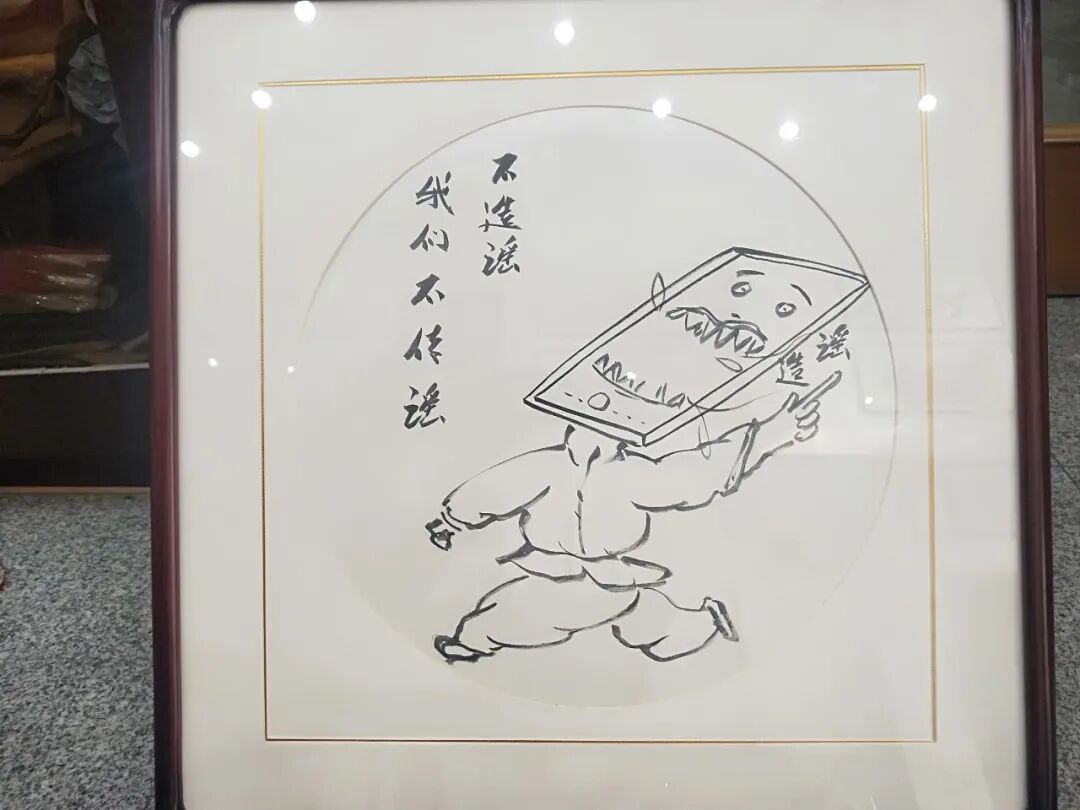 不造谣
我们不传谣
造谣